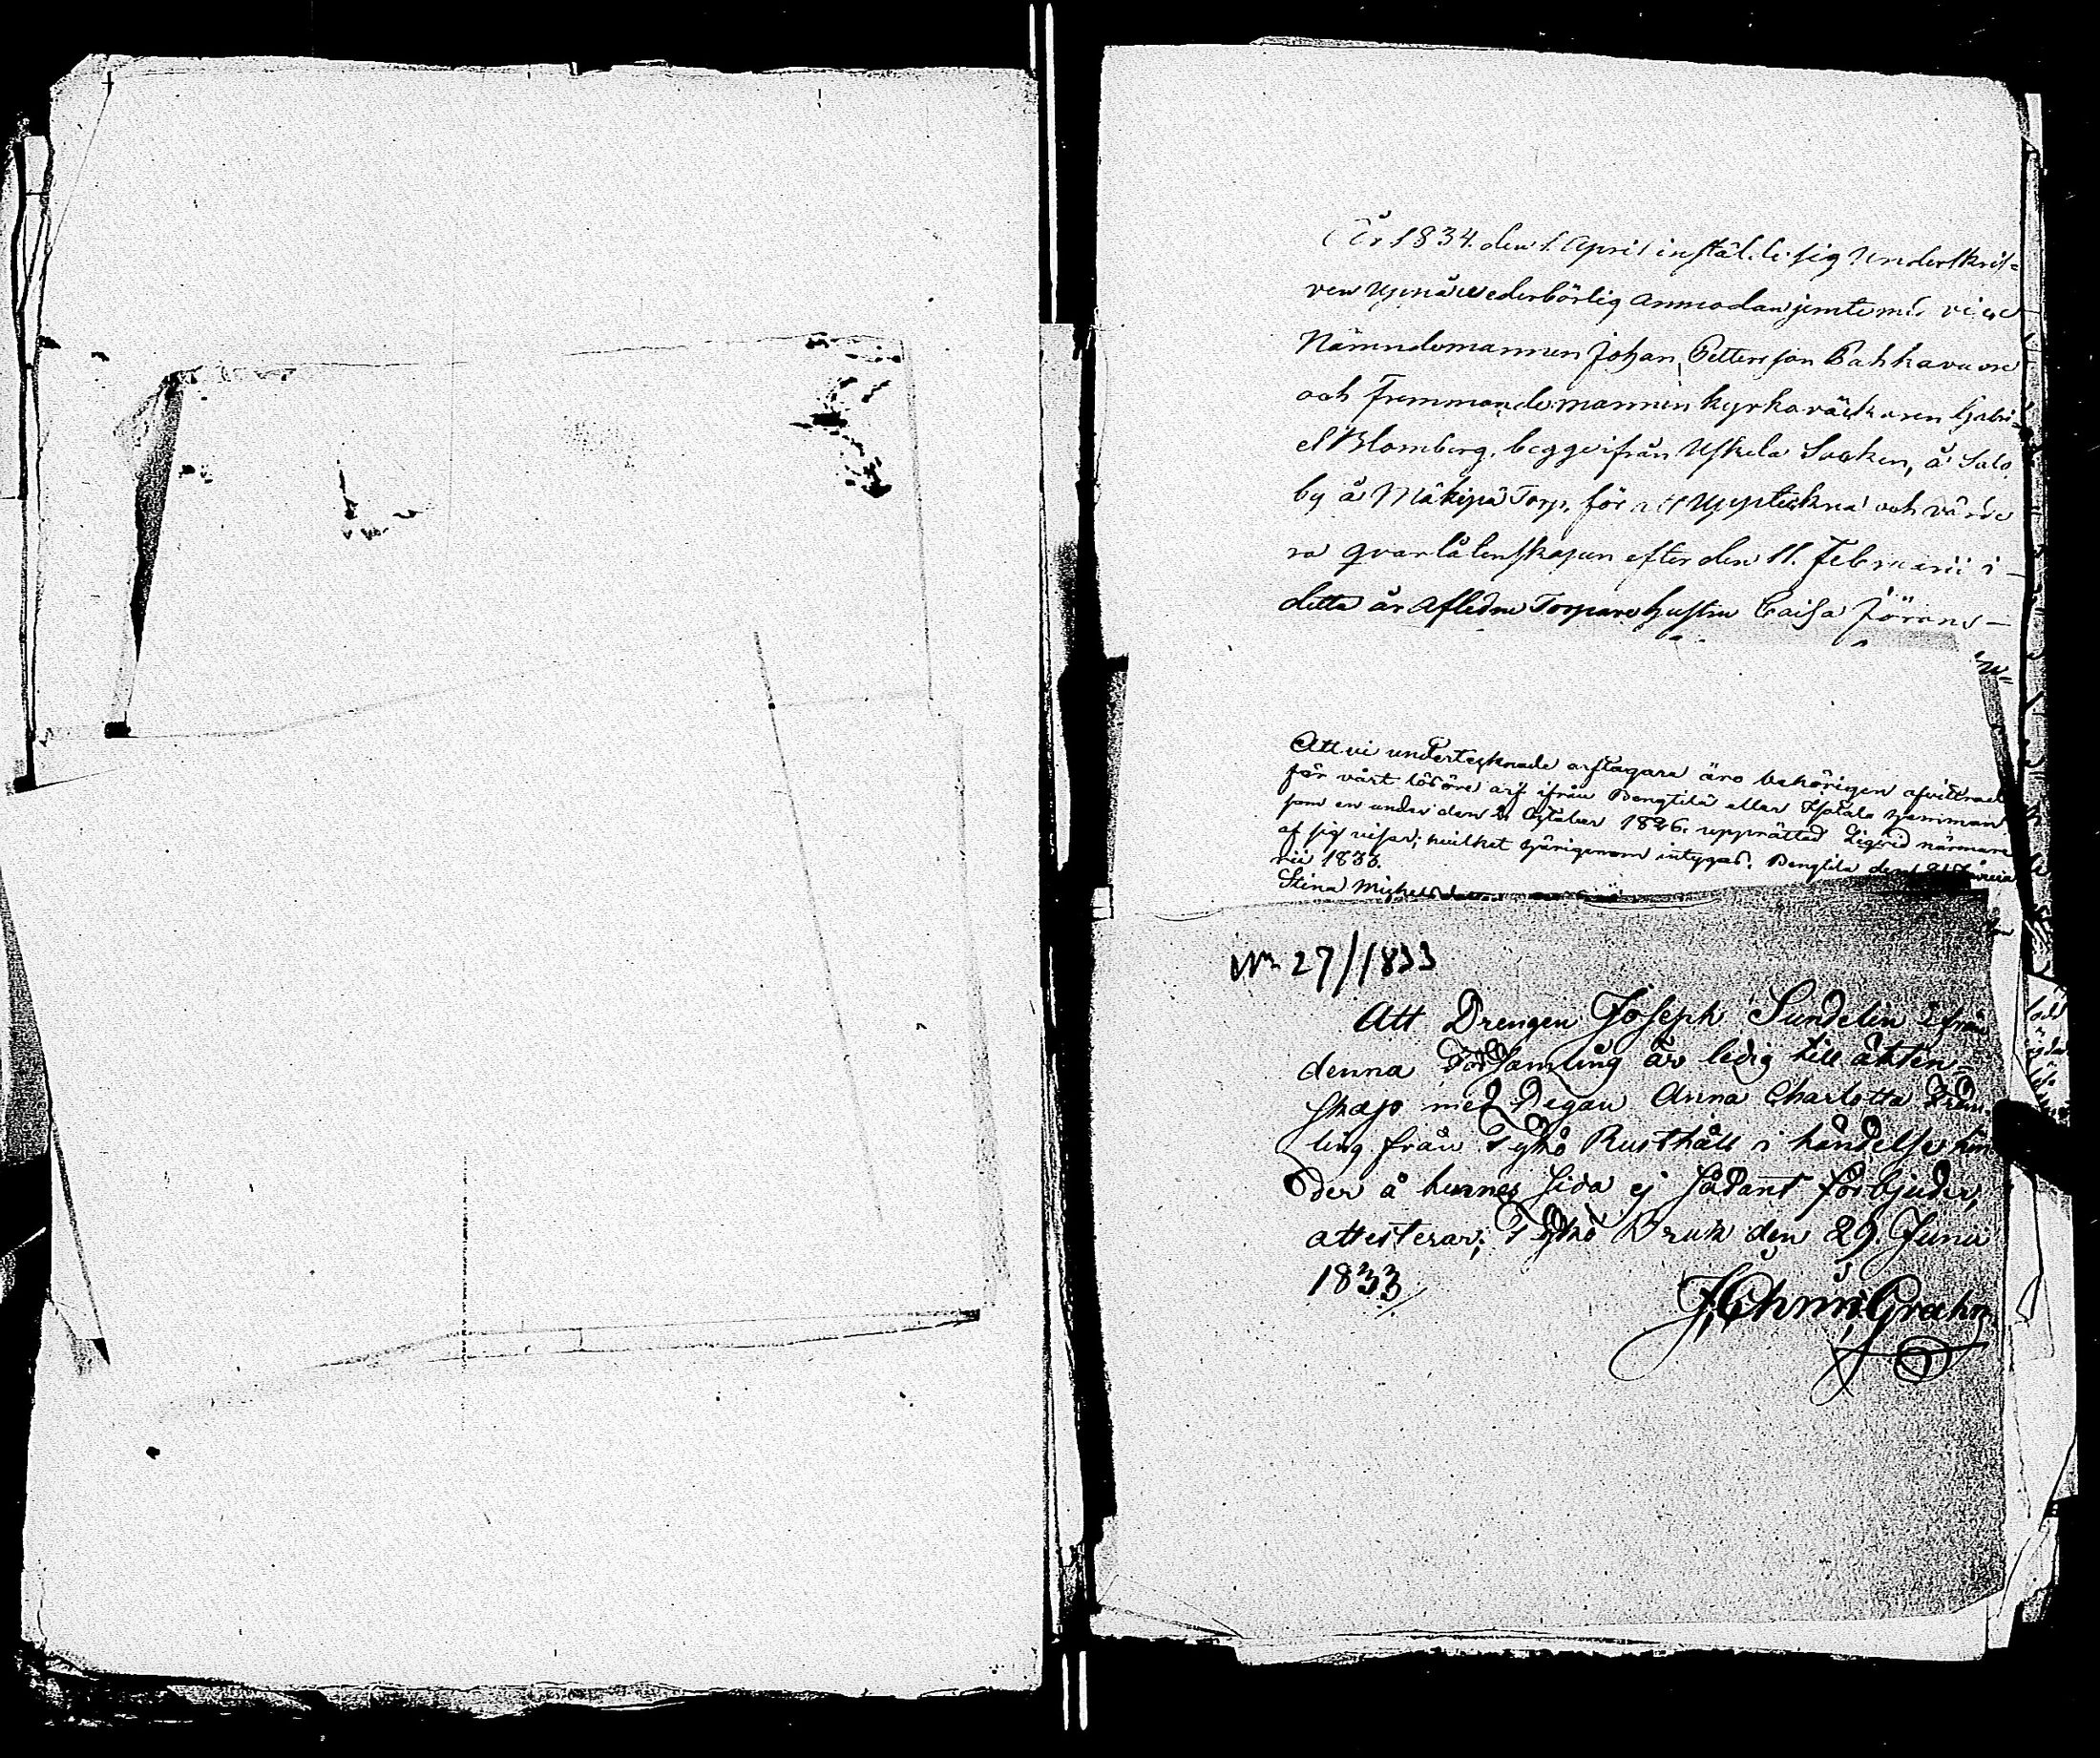 År 1834. den 1. April instälde sig Underskrif=
ven uppå wederbörlig anmodan jemte med vice
Nämndemannen Johan Pettersson Pahkavuore
och Fremmande mannen kyrkoväcktaren Gabri=
el Blomberg, begge ifrån Uskela Socken, å Salo
by å Mäkipä Torp, för att Uppteckna och värde
ra qvarlåtenskapen efter den 11. Februarii i
detta år Afledne Torpare hustru Caisa Jörans-
Att vi undertecknade arftagare äro behörigen afvittrade
för vårt lösöre arf ifrån Bengtilä eller Isotalo hemman
som en under den 2 October 1826. upprättad Liqvid närmare
af sig visar; hvilket härigenom intygas. Bengtila den 21 Janua
rii 1833.
Stina Michelsdotter
No 27//1833
Att Drengen Joseph Sundelin ifrån
denna Församling är ledig till äkten=
skap med Pigan Anna Charlotta
ling från Tykö Rusthåll i händelse hin
der å hennes sida ej sådant förbjuder,
attesterar; Tykö Bruk den 29. Junii
1833/
J. Ehrnr. Grahn